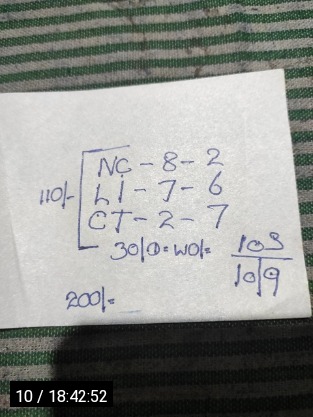 NC - 8 - 2
110/- LI - 7 - 6
CT - 2 - 7
30/0 = WO/= 103
10/9
200/=
10 / 18:42:52